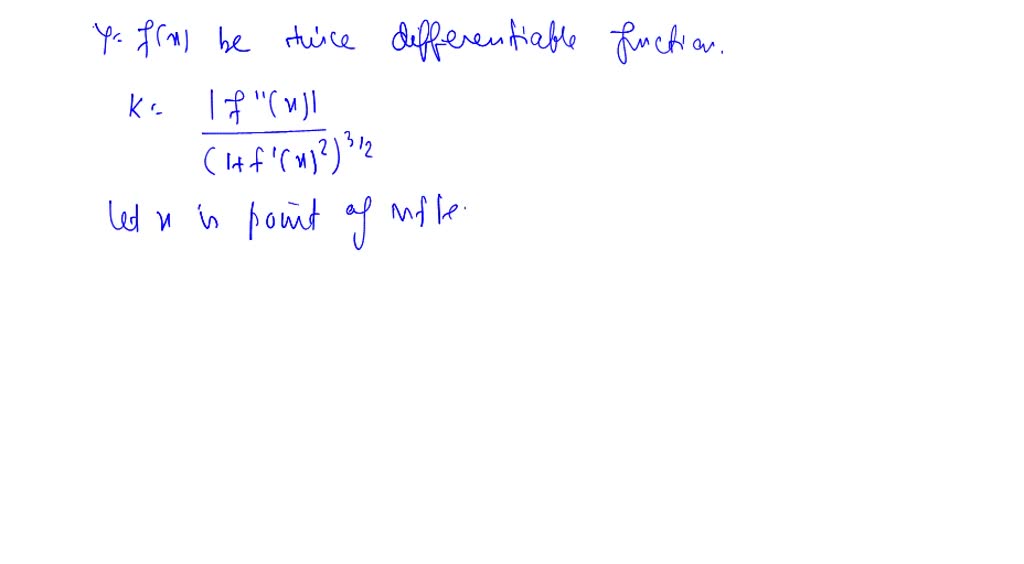 y = f(x) be twice differentiable function.
K = |f''(x)| / (1+f'(x)^2)^{3/2}
let x is point of infle.